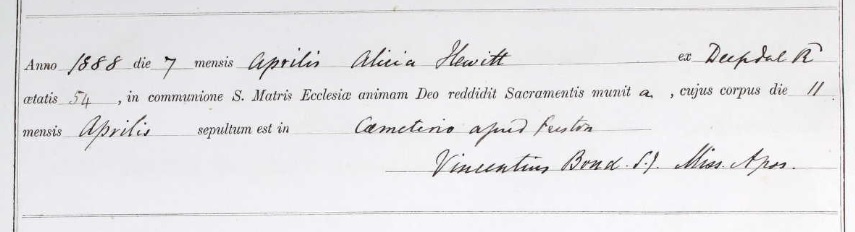 Anno 1888 die 7 mensis Aprilis Alicia Hewitt ex Deepdal R
ætatis 54, in communione S. Matris Ecclesiæ animam Deo reddidit Sacramentis munit a, cujus corpus die 11
mensis Aprilis sepultum est in Cœmeterio apud Preston
Vincentius Bond S.J. Miss. Apos.